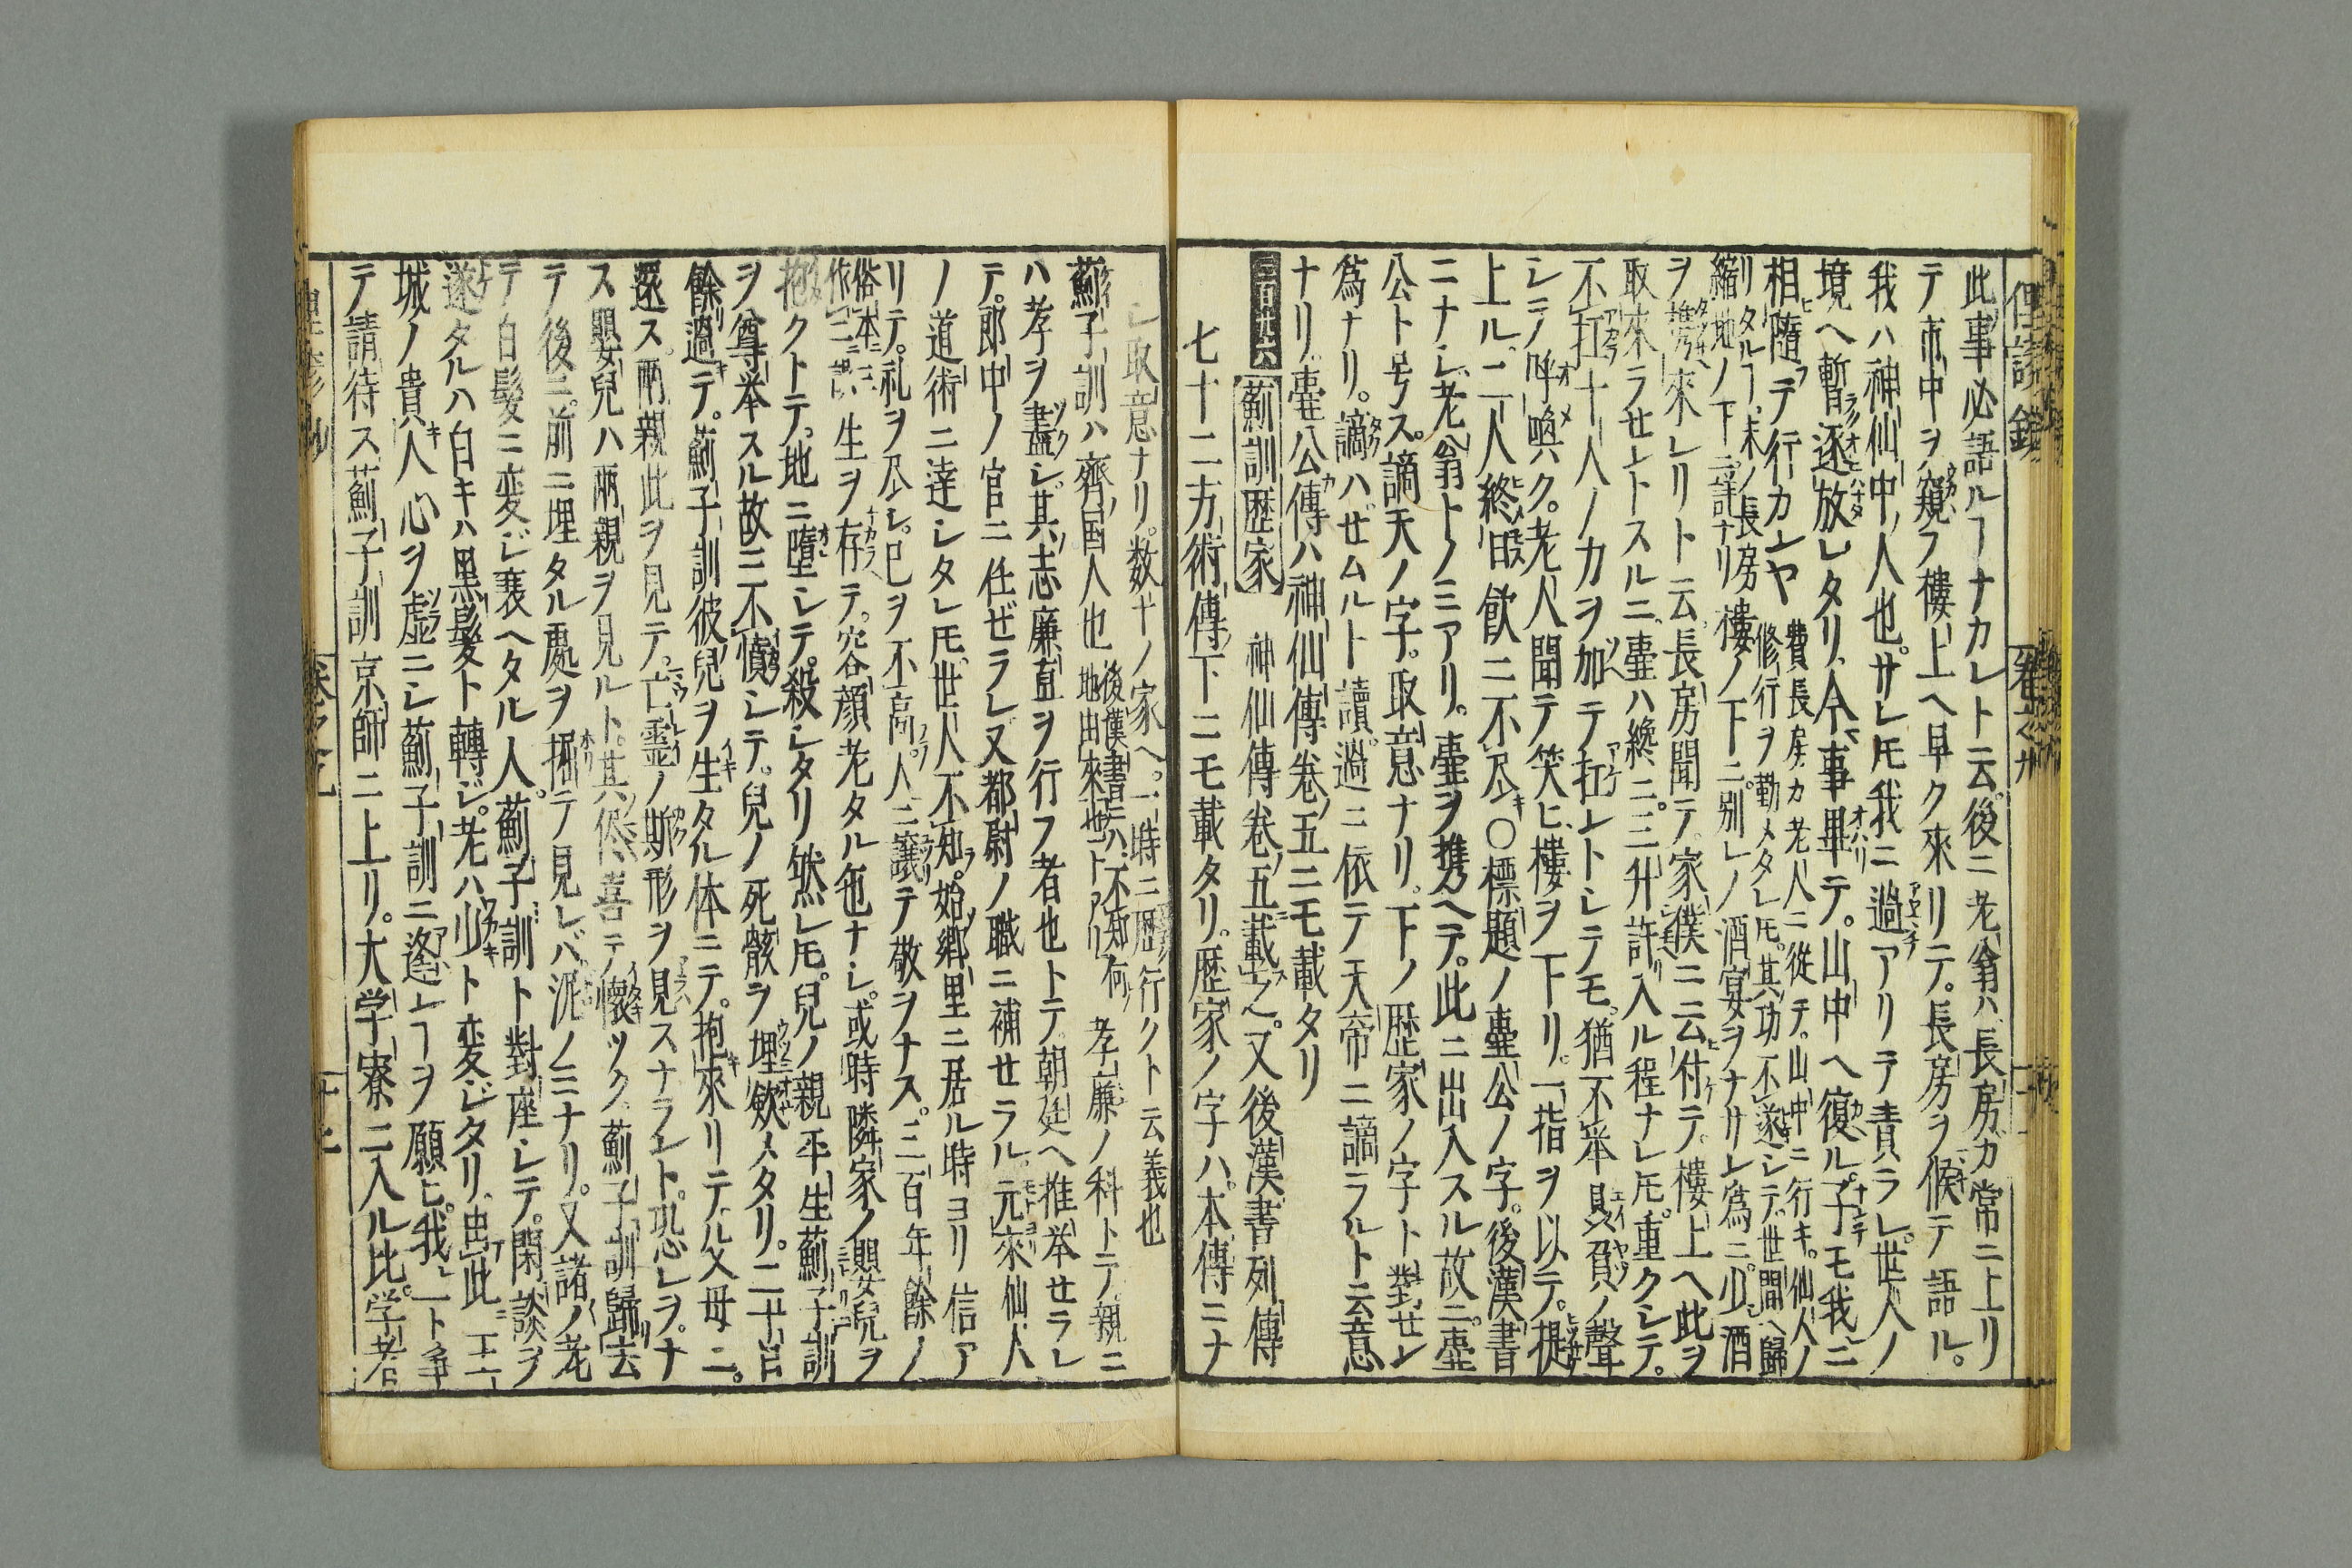 此事必語ルヿナカレト云後ニ老翁ハ長房ガ常ニ上リ
テ市中ヲ窺フ樓上ヘ早ク來リテ長房ヲ候テ語ル
我ハ神仙中ノ人也サレ𪜈我ニ過アリテ責ラレ世人ノ
境ヘ暫逐放レタリ今事畢テ山中ヘ復ル子モ我ニ
相隨テ行カンヤ 費長房カ老人ニ從テ山中ニ行キ仙人ノ
修行ヲ勤メタレ𪜈其功不遂シテ世間ヘ歸
リタルヿ末ノ長房
縮地ノ下ニ詳ナリ 樓ノ下ニ別レノ酒宴ヲナサン爲ニ少酒
ヲ携ヘ來レリト云長房聞テ家僕ニ云付テ樓上ヘ此ヲ
取來ラセントスルニ壷ハ纔ニ三升許入ル程ナレ𪜈重クシテ
不扛十人ノ力ヲ加テ扛ントシテモ猶不举 負ノ聲
シテ呼喚ク老人聞テ笑ヒ樓ヲ下リ一指ヲ以テ提
上ル二人終日飲ニ不尽〇標題ノ壷公ノ字後漢書
ニナシ老翁トノミアリ壷ヲ携ヘテ此ニ出入スル故ニ壷
公ト号ス謫天ノ字取意ナリ下ノ歴家ノ字ト對セン
爲ナリ謫ハせムルト讀過ニ依テ天帝ニ謫ラルト云意
ナリ壷公傳ハ神仙傳卷五ニモ載タリ
薊訓歴家 神仙傳卷五載之又後漢書列傳
七十二方術傳下ニモ載タリ歴家ノ字ハ本傳ニナ
シ取意ナリ数十ノ家ヘ一時ニ歴行クト云義也
薊子訓ハ齊国人也 後漢書云ハ不知何
地出來也トアリ 孝廉ノ科トテ親ニ
ハ孝ヲ盡シ其志廉直ヲ行フ者也トテ朝廷ヘ推举セラレ
テ郎中ノ官ニ任ぜラレ又都尉ノ職ニ補セラル元來仙人
ノ道術ニ達シタレ𪜈世人不知始郷里ニ居ル時ヨリ信ア
リテ礼ヲ尽シ已ヲ不高人ニ讓テ敬ヲナス三百年餘ノ
生ヲ存テ容顔老タル色ナシ或時隣家ノ嬰兒ヲ
抱クトテ地ニ墮シテ殺シタリ然レ𪜈兒ノ親平生薊子訓
ヲ尊举スル故ニ不憤シテ兒ノ死骸ヲ埋歛メタリ二十日
餘過テ薊子訓彼兒ヲ生タル体ニテ抱來リテ父母ニ
返ス兩親此ヲ見テ亡靈ノ斯形ヲ見スナラント恐レヲナ
ス嬰兒ハ兩親ヲ見ルト其侭喜テ懷ツク薊子訓歸去
テ後ニ前ニ埋タル處ヲ掘テ見レバ泥ノミナリ又諸ノ老
テ白髪ニ変ジ衰ヘタル人薊子訓ト對座シテ閑談ヲ
遂タルハ白キハ黒髪ト轉ジ老ハ少ト変ジタリ由此
城ノ貴人心ヲ虚ニシ薊子訓ニ逢レヿヲ願ヒ我一ト争
テ請待ス薊子訓京師ニ上リ大学寮ニ入ル比学者